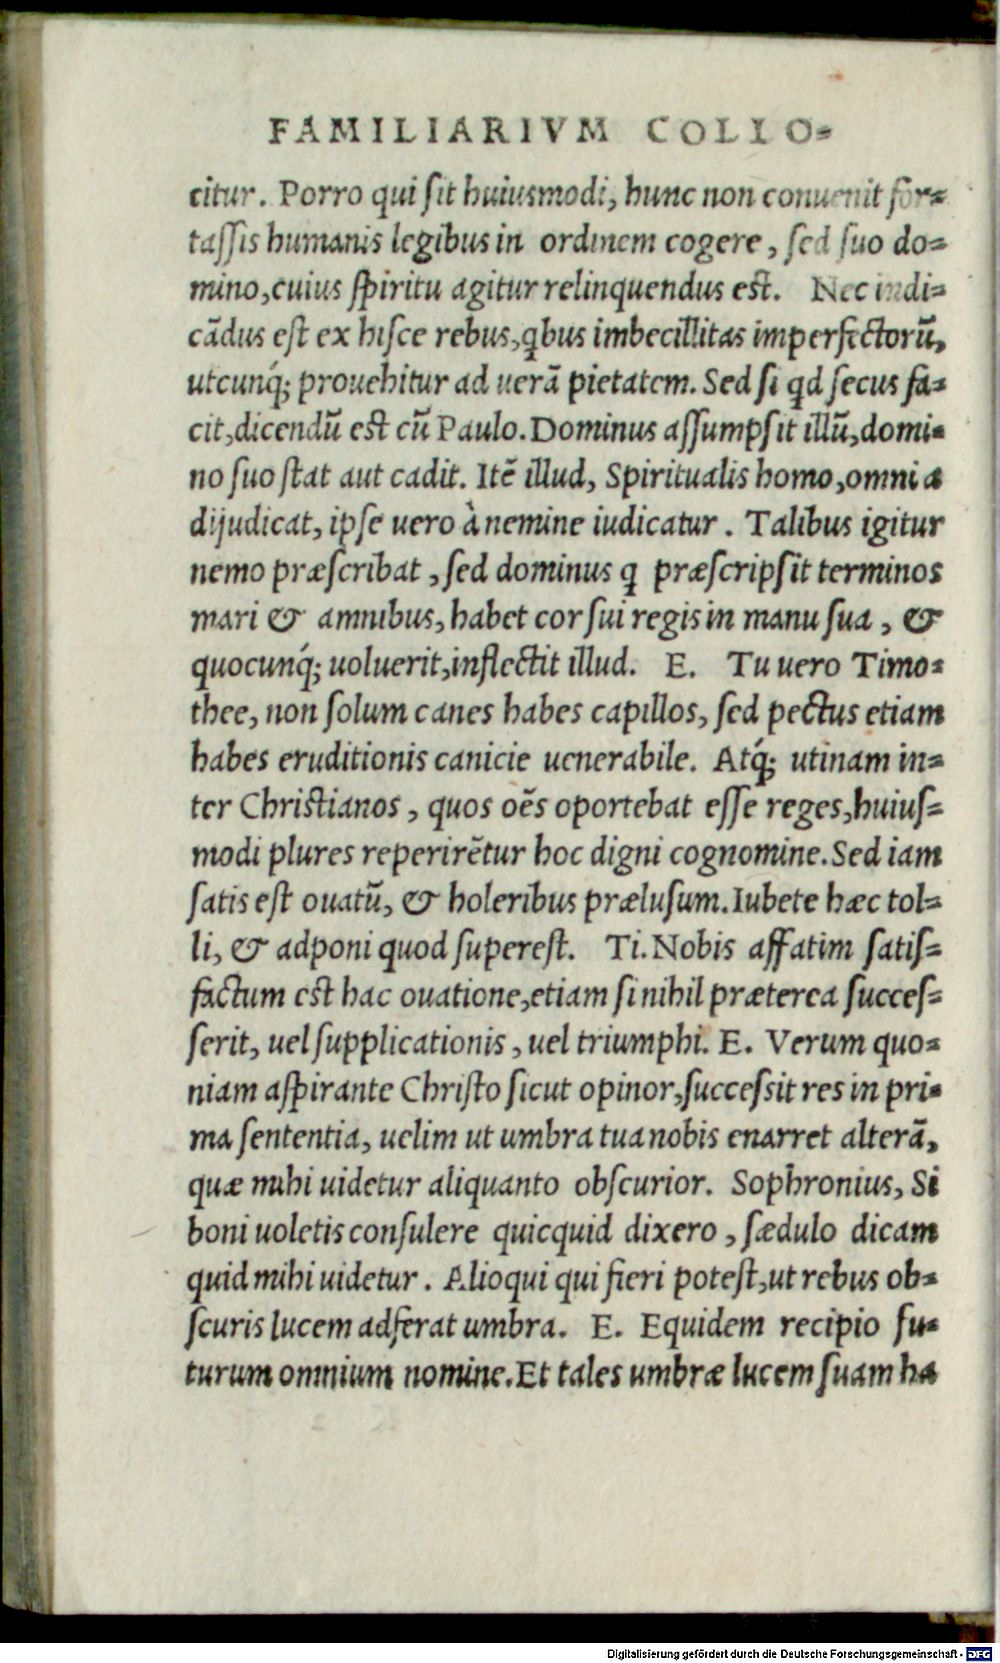 FAMILIARIVM COLLO-
citur. Porro qui ſit huiusmodi, hunc non conuenit for-
taſſis humanis legibus in ordinem cogere, ſed ſuo do-
mino, cuius ſpiritu agitur relinquendus eſt. Nec iudi-
cãdus eſt ex hiſce rebus, qbus imbecillitas imperfectorũ,
utcunq́; prouehitur ad uerã pietatem. Sed ſi qd ſecus fa-
cit, dicendũ eſt cũ Paulo. Dominus aſſumpſit illũ, domi-
no ſuo ſtat aut cadit. Itẽ illud, Spiritualis homo, omnia
dijudicat, ipſe uero à nemine iudicatur. Talibus igitur
nemo præſcribat, ſed dominus q præſcripſit terminos
mari & amnibus, habet cor ſui regis in manu ſua, &
quocunq́; uoluerit, inflectit illud. E. Tu uero Timo-
thee, non ſolum canes habes capillos, ſed pectus etiam
habes eruditionis canicie uenerabile. Atq́; utinam in-
ter Chriſtianos, quos oẽs oportebat eſſe reges, huiuſ-
modi plures reperirẽtur hoc digni cognomine. Sed iam
ſatis eſt ouatũ, & holeribus præluſum. Iubete hæc tol-
li, & adponi quod ſupereſt. Ti. Nobis affatim ſatiſ-
factum eſt hac ouatione, etiam ſi nihil præterea ſucceſ-
ſerit, uel ſupplicationis, uel triumphi. E. Verum quo-
niam aſpirante Chriſto ſicut opinor, ſucceſſit res in pri-
ma ſententia, uelim ut umbra tua nobis enarret alterã,
quæ mihi uidetur aliquanto obſcurior. Sophronius, Si
boni uoletis conſulere quicquid dixero, ſædulo dicam
quid mihi uidetur. Alioqui qui fieri poteſt, ut rebus ob-
ſcuris lucem adferat umbra. E. Equidem recipio fu-
turum omnium nomine. Et tales umbræ lucem ſuam ha
Digitalisierung gefördert durch die Deutsche Forschungsgemeinschaft - DFG